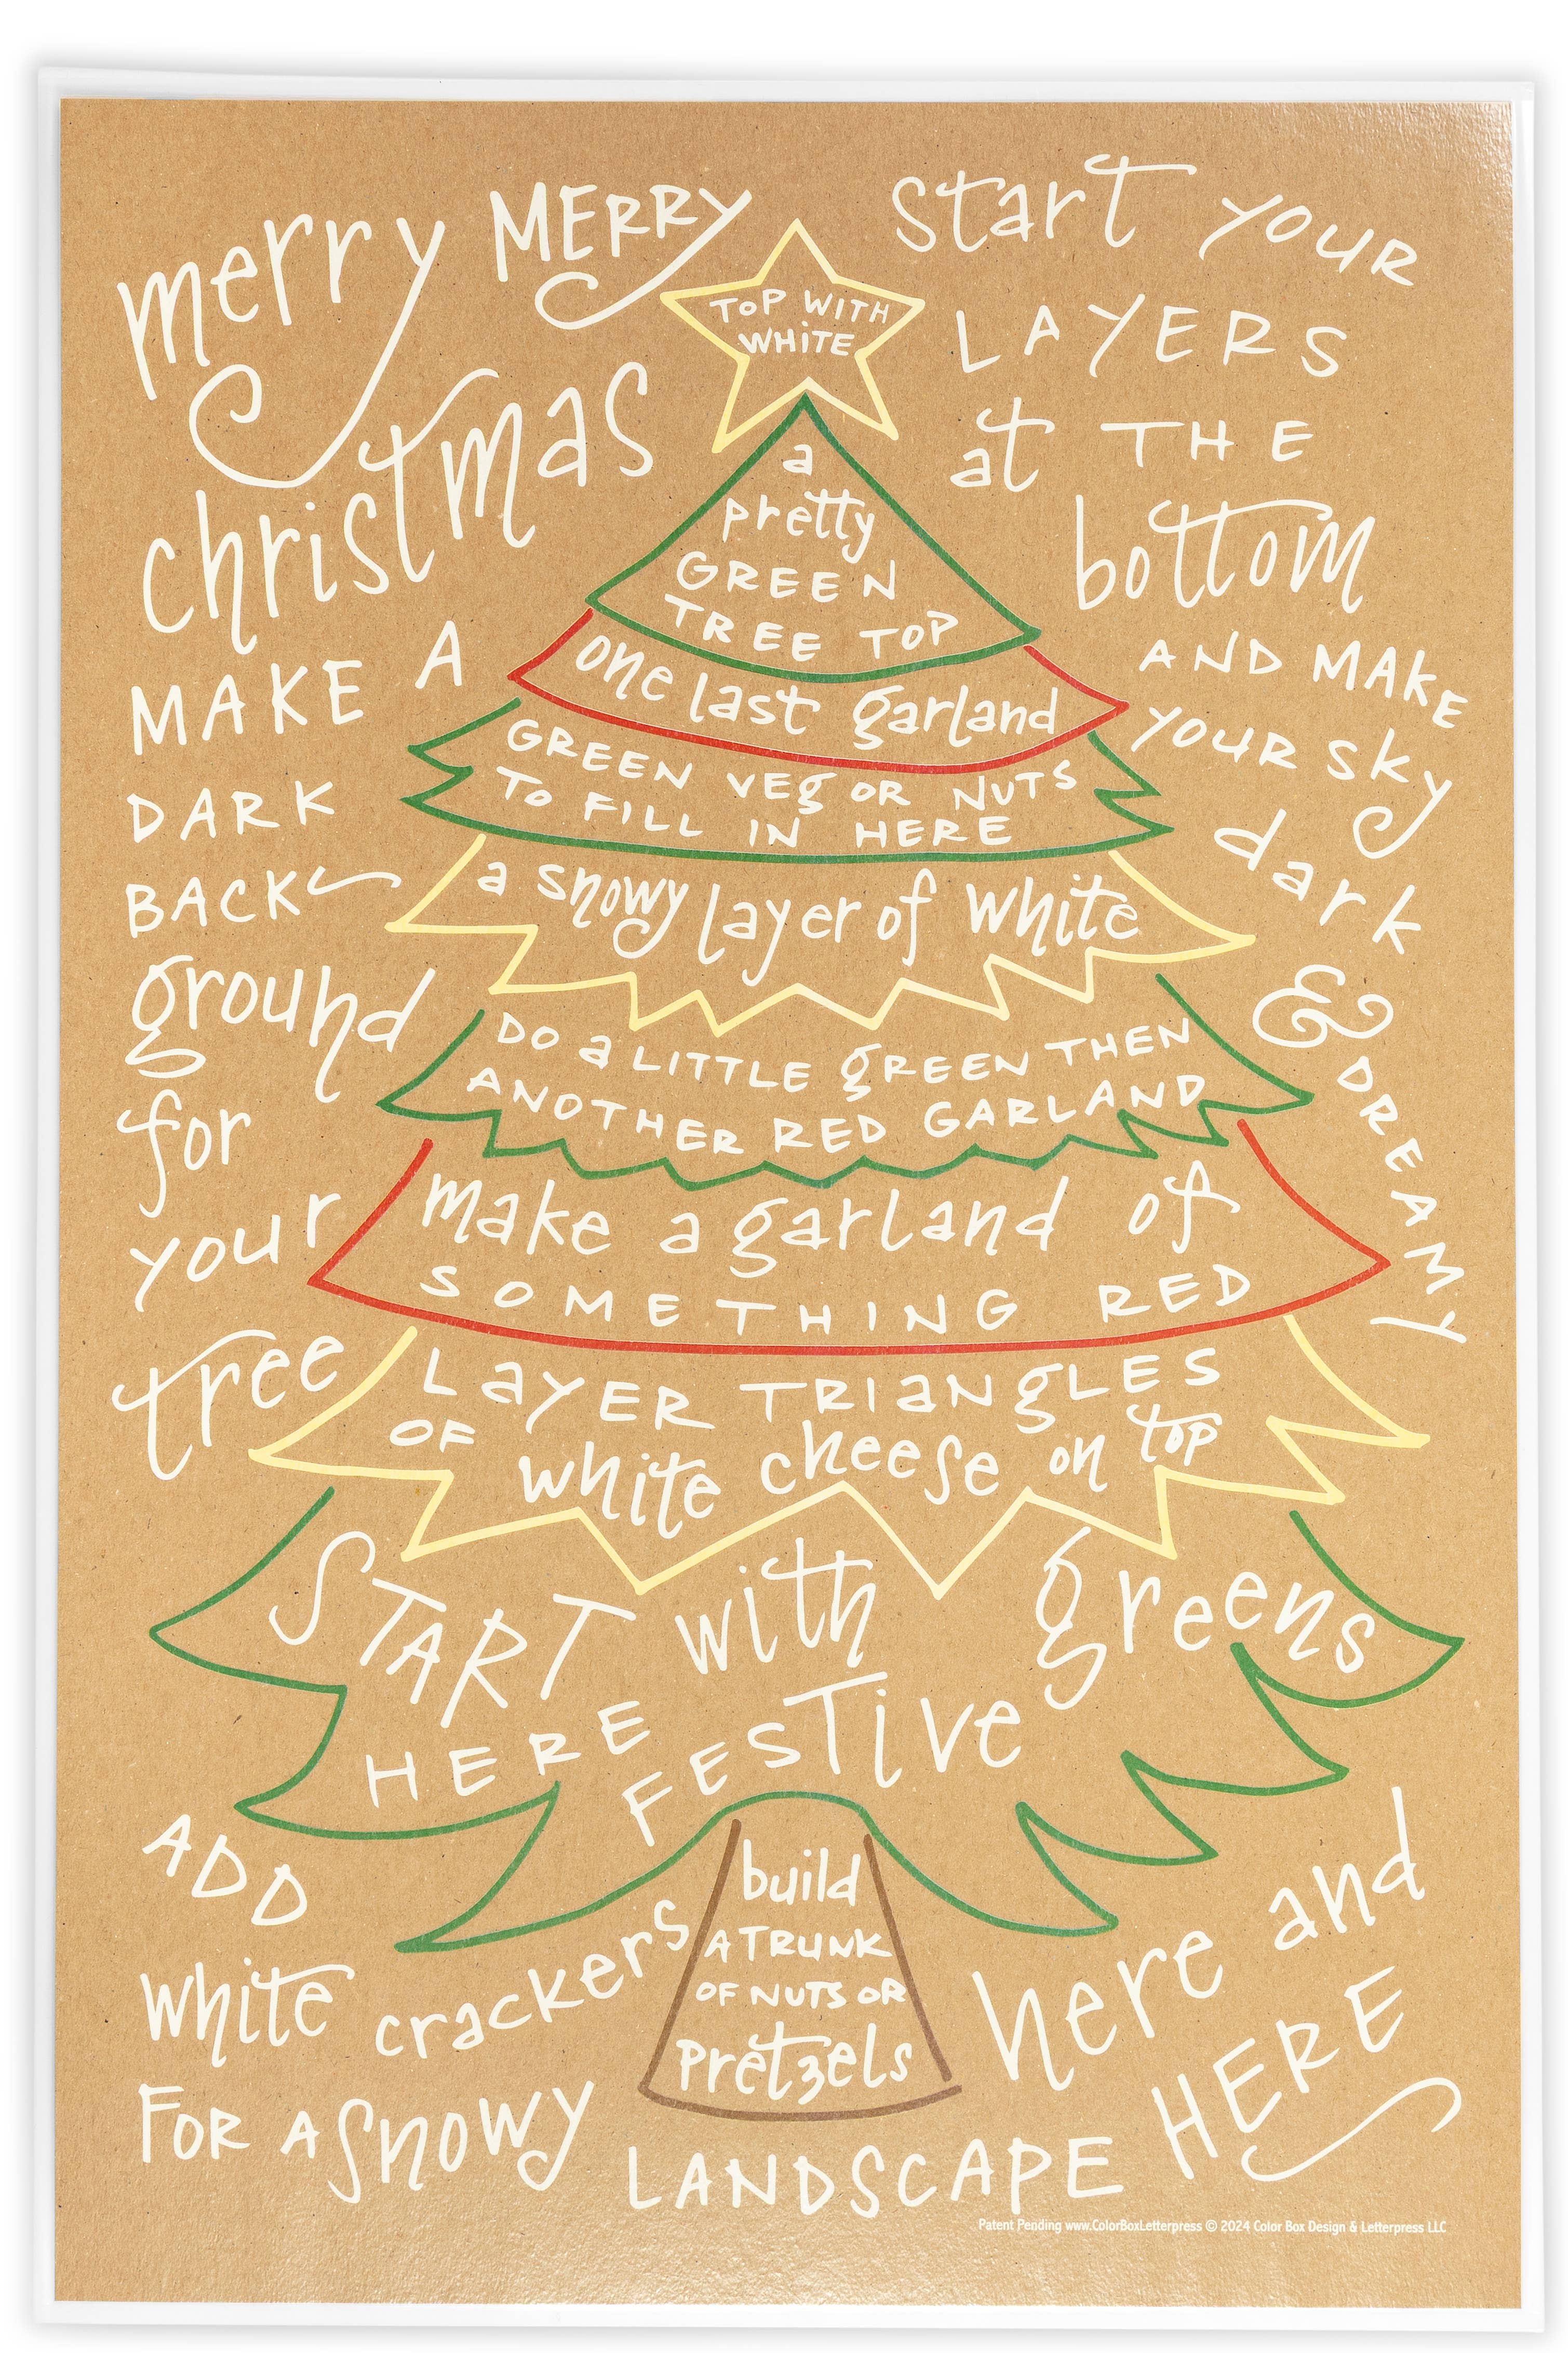 merry MERRY
christmas
MAKE A
DARK
BACK
ground
for
your
tree
start YOUR
LAYERS
at THE
bottom
AND MAKE
YOUR sky
dark
&
DREAMY
TOP WITH
WHITE
a
pretty
GREEN
TREE TOP
one last garland
GREEN VEg OR NUTS
TO FILL IN HERE
a snowy layer of white
DO a LITTLE gREEN THEN
ANOTHER RED GARLAND
make a garland of
SOMETHING RED
LAYER TRIANgLES
OF white cheese on top
START with greens
HERE FESTive
build
A TRUNK
OF NUTS OR
pretzels
ADD
white crackers
FOR A snowy
LANDSCAPE
here and
HERE
Patent Pending www.ColorBoxLetterpress © 2024 Color Box Design & Letterpress LLC